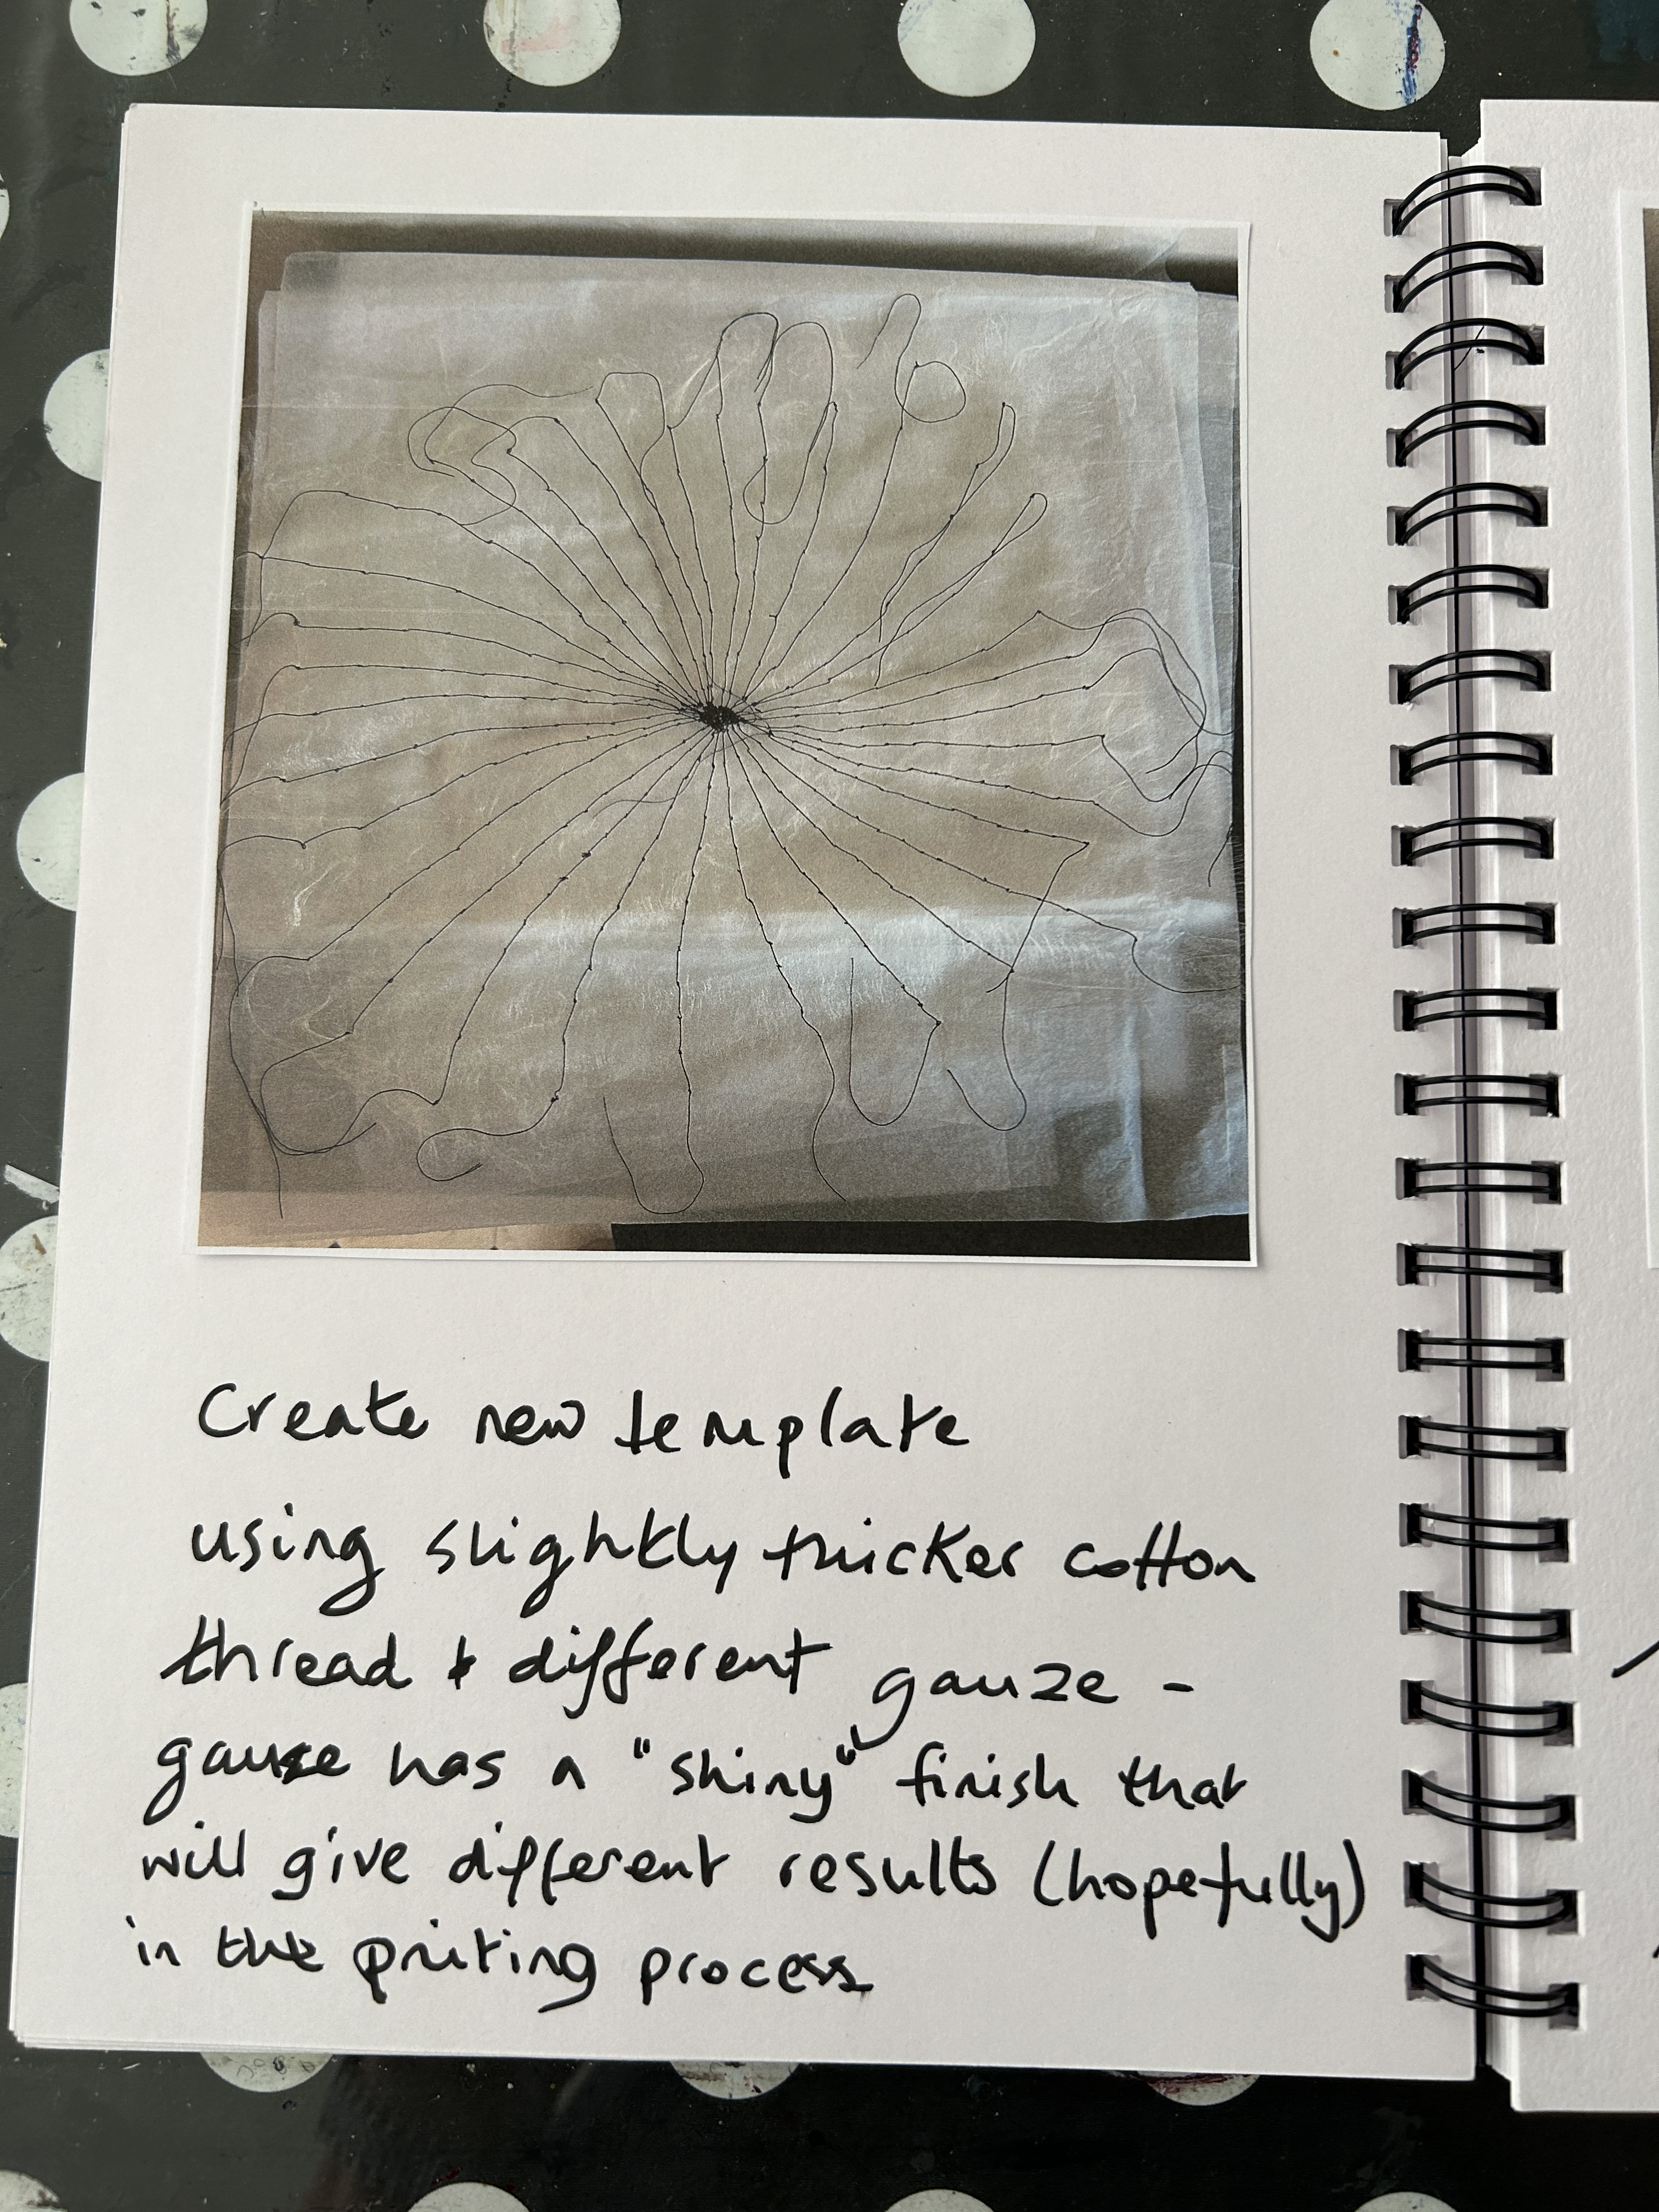 Create new template
using slightly thicker cotton
thread & different gauze -
gauze has a "shiny" finish that
will give different results (hopefully)
in the printing process